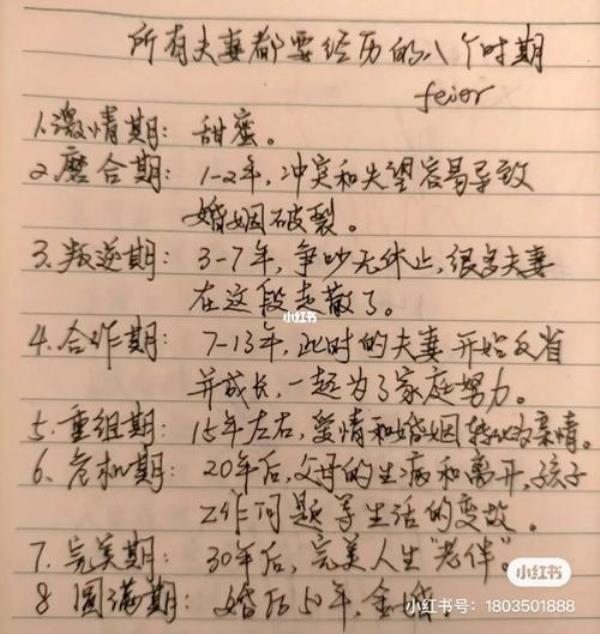 所有夫妻都要经历的八个时期
feier
1.激情期：甜蜜。
2.磨合期：1-2年，冲突和失望容易导致
婚姻破裂。
3.叛逆期：3-7年，争吵无休止，很多夫妻
在这段走散了。
小红书
4.合作期：7-13年，此时的夫妻开始反省
并成长，一起为了家庭努力。
5.重组期：15年左右，爱情和婚姻转化为亲情。
6.危机期：20年后，父母的生病和离开，孩子
工作问题等生活的变故。
7.完美期：30年后，完美人生"老伴"。
小红书
8 圆满期：婚后50年，金婚
小红书号：1803501888